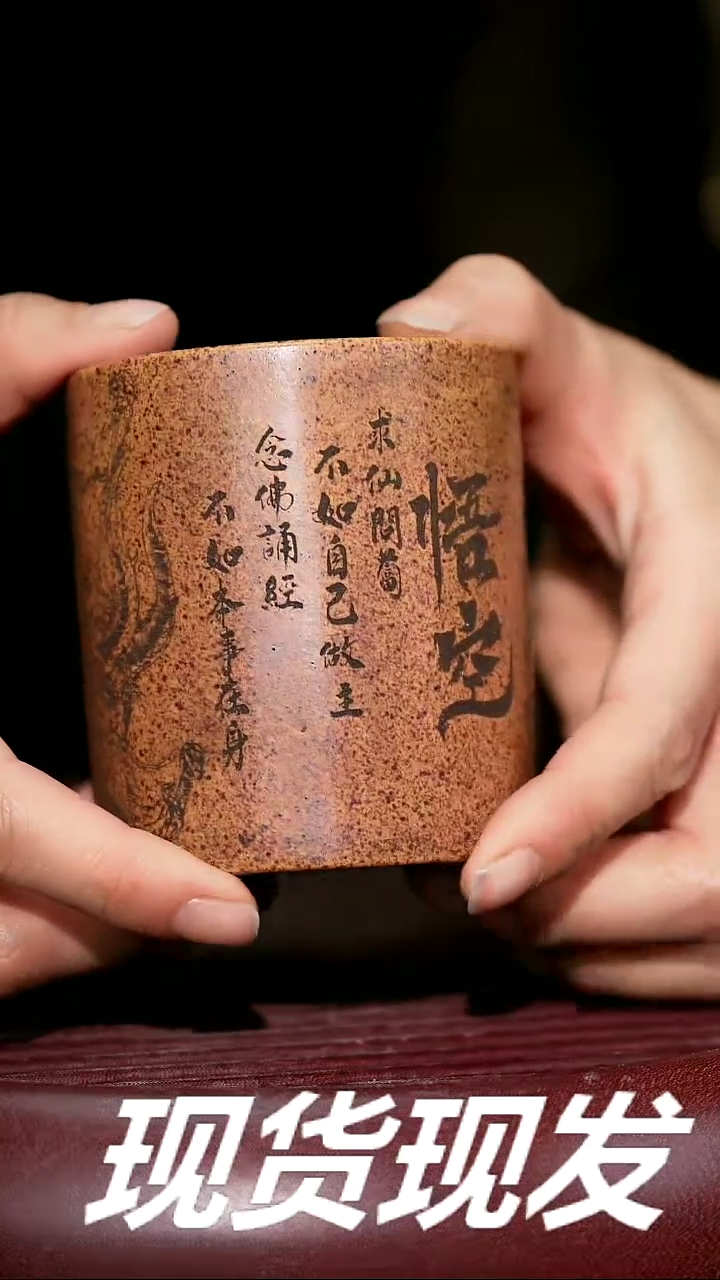 悟空
求仙問蔔
不如自己做主
念佛誦經
不如本事在身
现货现发